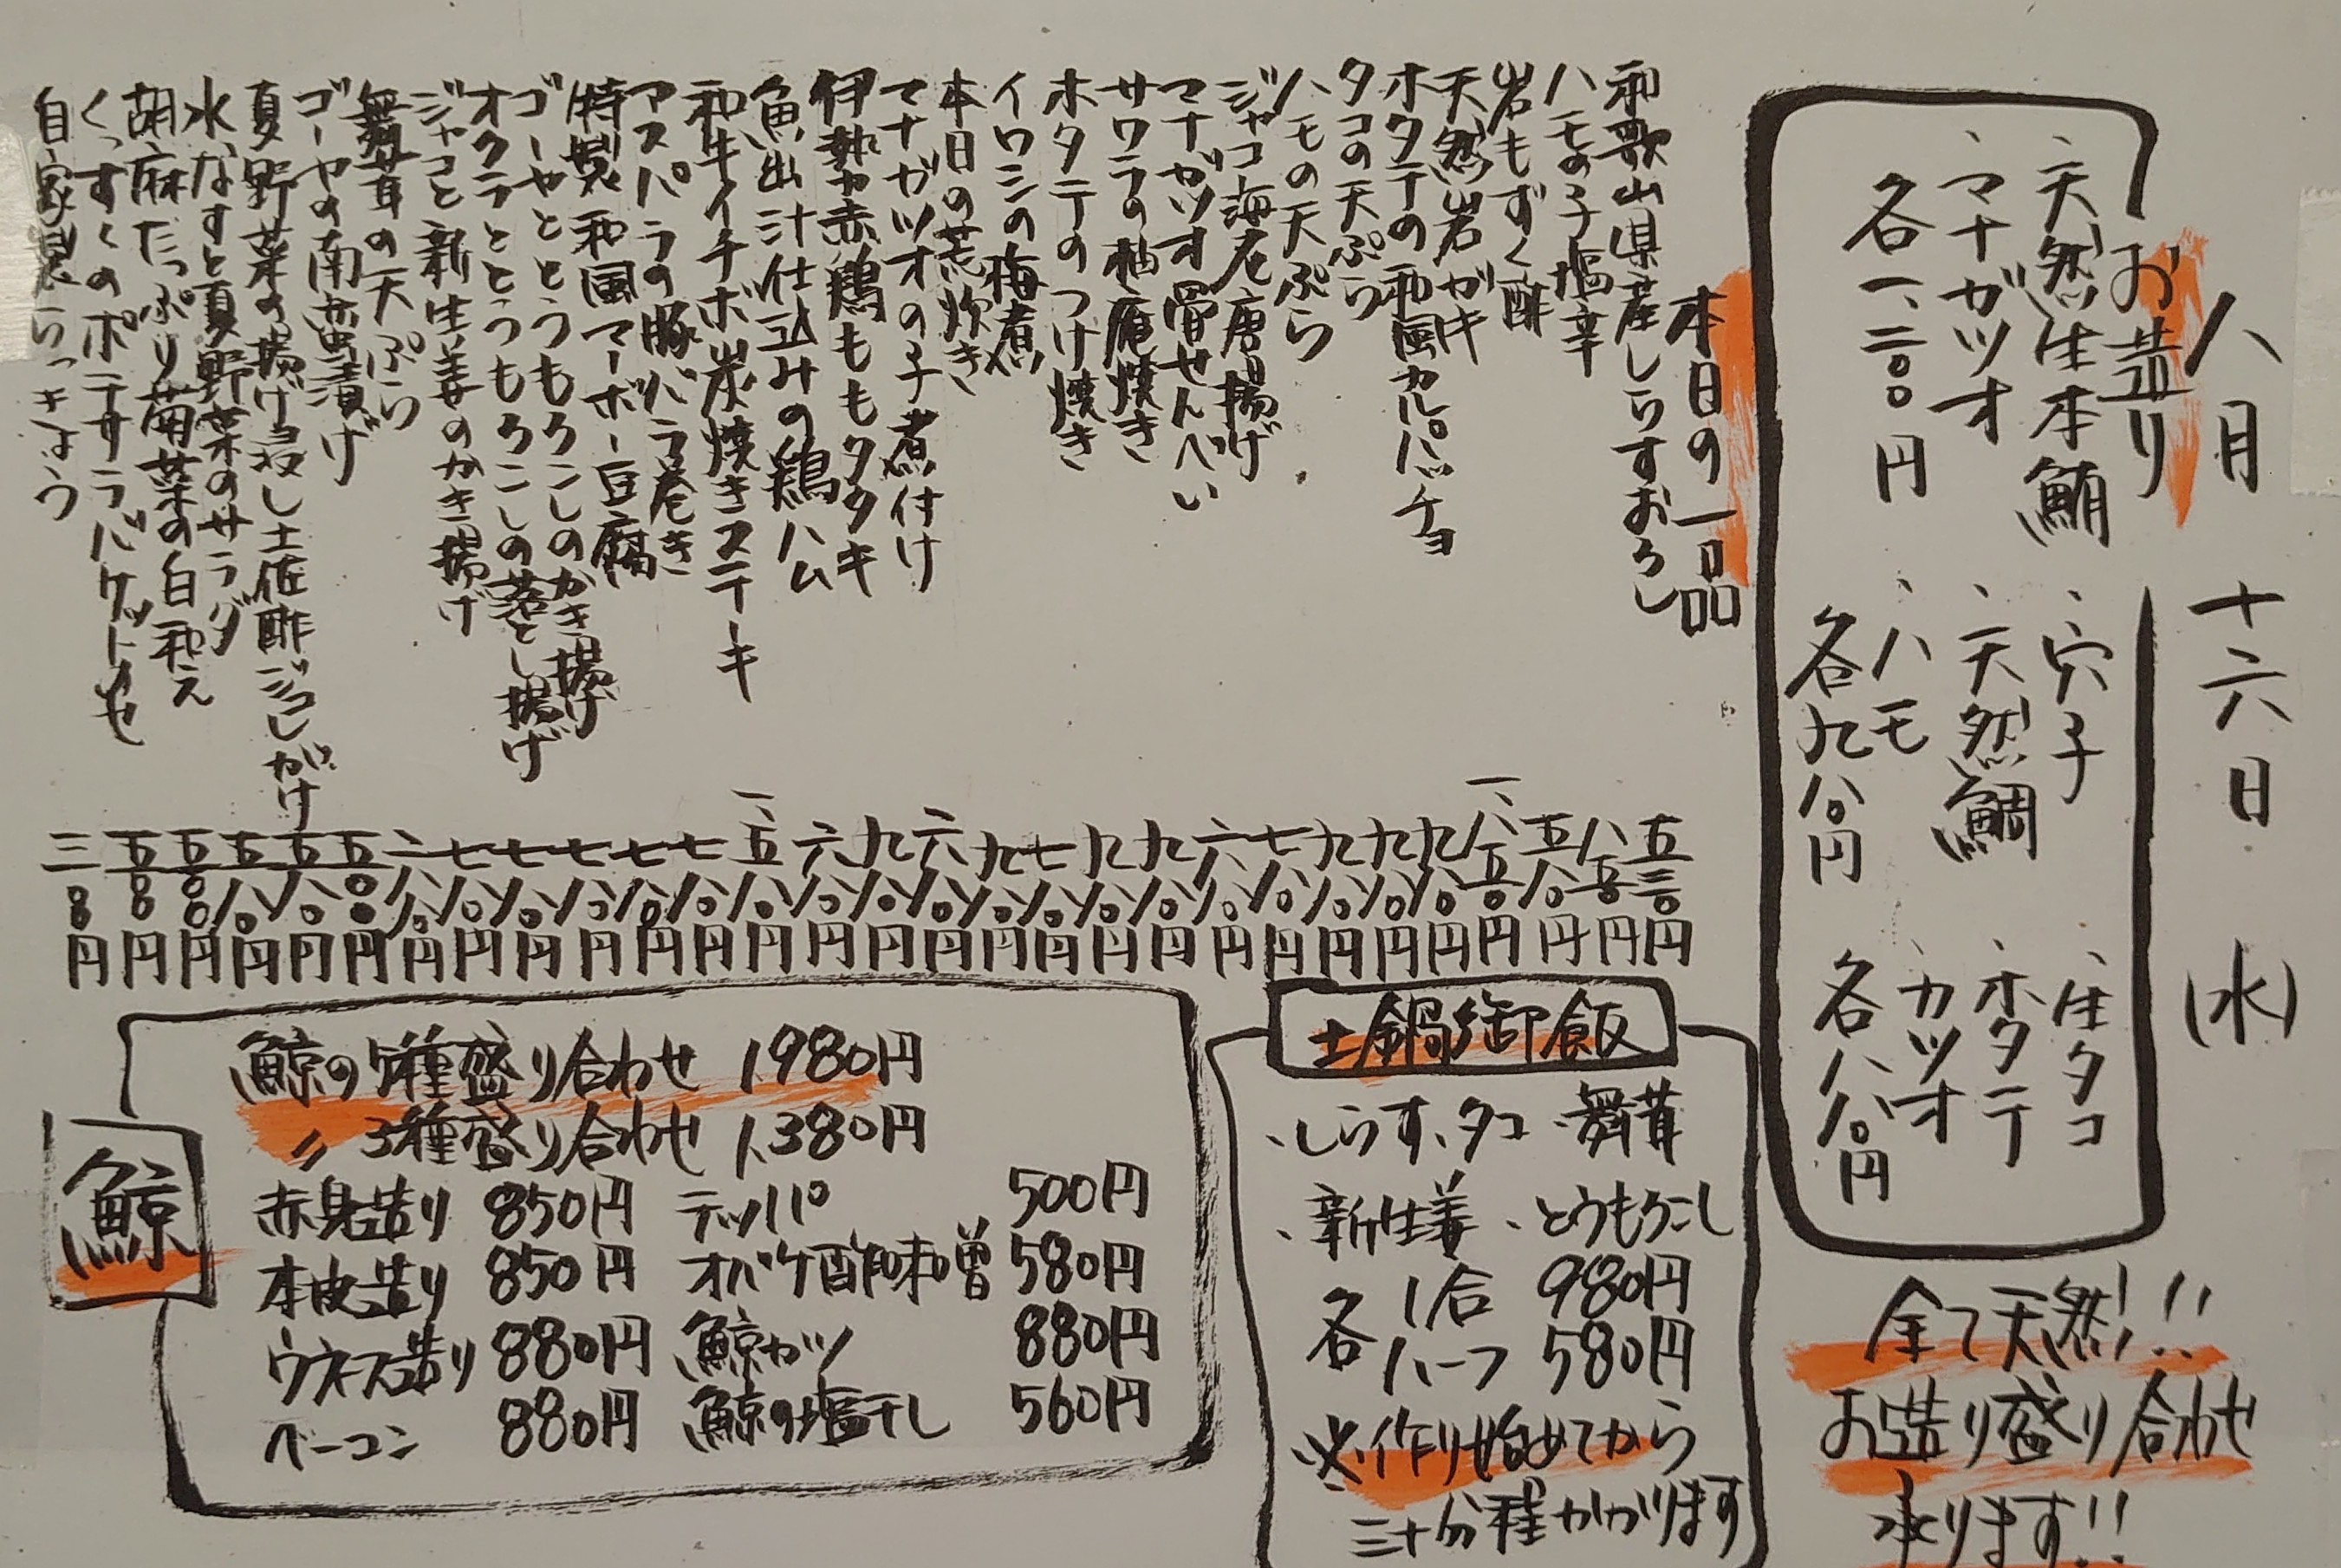 八月 十六日 (水)
お造り
、天然生本鮪
、マナガツオ
各一、二〇〇円
、穴子
、天然鯛
、ハモ
各九八〇円
、生タコ
、ホタテ
、カツオ
各八八〇円
全て天然!!
お造り盛り合わせ
承ります!!
本日の一品
和歌山県産しらすおろし 五三〇円
ハモの子塩辛 八五〇円
岩もずく酢 五八〇円
天然岩ガキ 一、八五〇円
ホタテの和風カルパッチョ 九八〇円
タコの天ぷら 九八〇円
ハモの天ぷら 九八〇円
ジャコ海老唐揚げ 七八〇円
マナガツオ骨せんべい 六八〇円
サワラの柚庵焼き 九八〇円
ホタテのつけ焼き 九八〇円
イワシの梅煮 七八〇円
本日の荒炊き 九八〇円
マナガツオの子煮付け 六八〇円
伊勢赤鶏ももタタキ 九八〇円
魚出汁仕込みの鶏ハム 六八〇円
和牛イチボ炭焼きステーキ 一、五八〇円
アスパラの豚バラ巻き 七八〇円
特製和風マーボー豆腐 七八〇円
ゴーヤととうもろこしのかき揚げ 七八〇円
オクラととうもろこしの落とし揚げ 七八〇円
ジャコと新生姜のかき揚げ 七八〇円
舞茸の天ぷら 六八〇円
ゴーヤの南蛮漬け 五〇〇円
夏野菜の揚げ浸し土佐酢ジュレがけ 五八〇円
水なすと夏野菜のサラダ 五八〇円
胡麻たっぷり菊菜の白和え 五〇〇円
くっすくのポテサラバケット 五〇〇円
自家製らっきょう 三〇〇円
土鍋御飯
、しらす、タコ、舞茸
、新生姜、とうもろこし
各 1合 980円
各 ハーフ 580円
※作り始めてから
三十分程かかります
鯨
鯨の5種盛り合わせ 1,980円
〃 3種盛り合わせ 1,380円
赤身造り 850円 テッパ 500円
本皮造り 850円 オバケ酢味噌 580円
ウネス造り 880円 鯨カツ 880円
ベーコン 880円 鯨の塩干し 560円